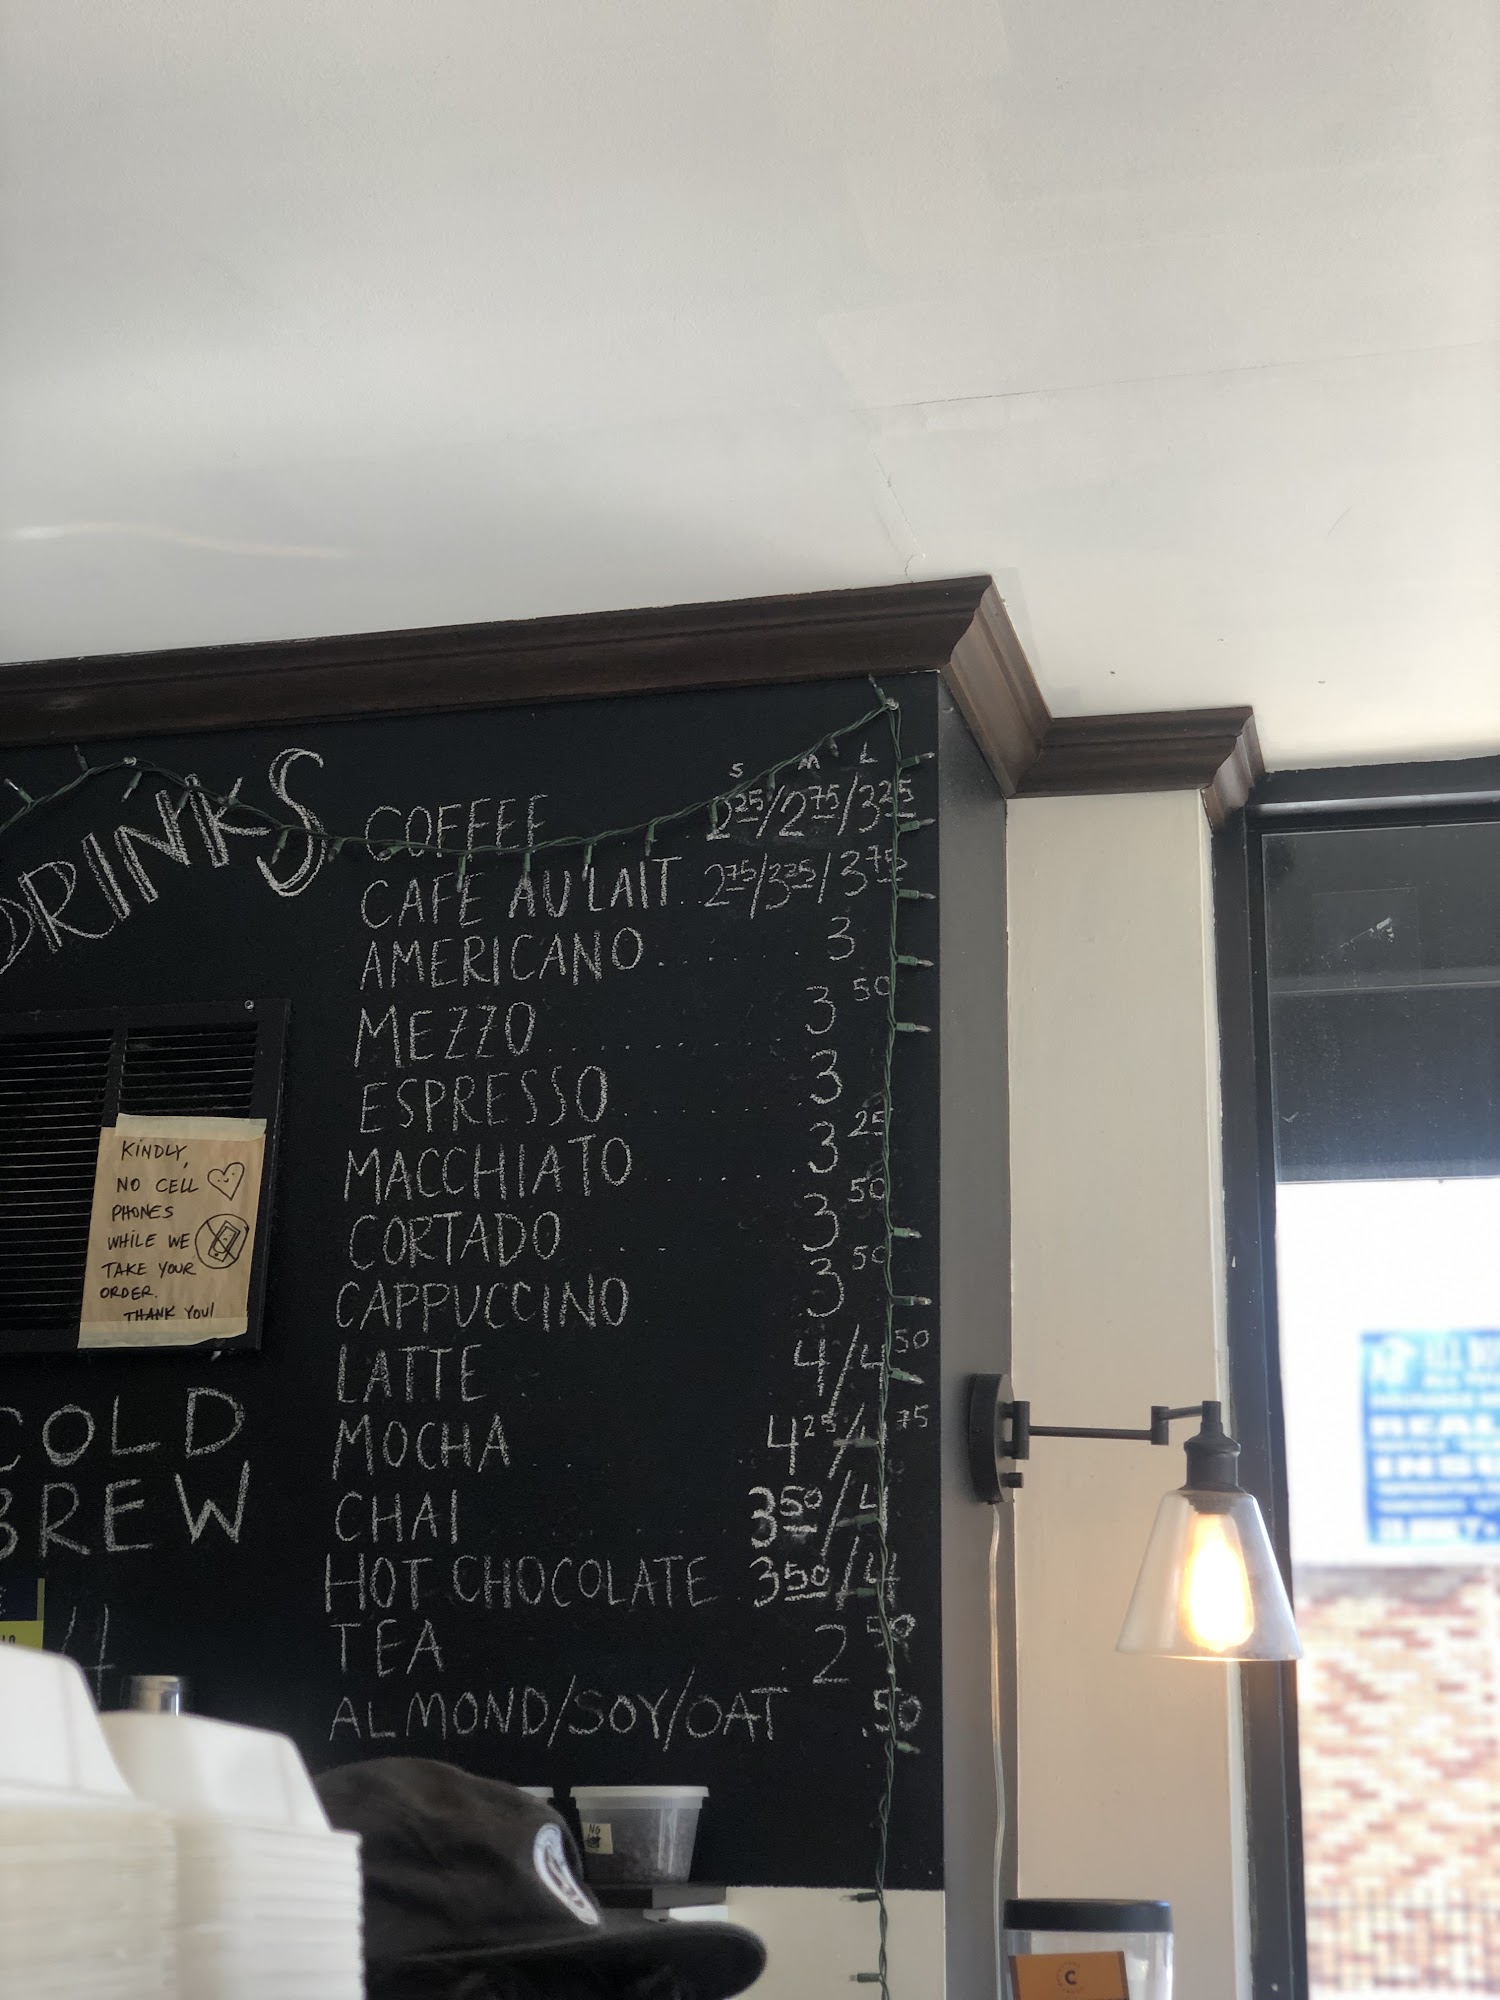 DRINKS
S M L
COFFEE 2.25/2.75/3.25
CAFE AU LAIT.. 2.75/3.25/3.75
AMERICANO........ 3
MEZZO............ 3.50
ESPRESSO......... 3
MACCHIATO....... 3.25
CORTADO.... 3.50
CAPPUCCINO 3.50
LATTE 4/4.50
MOCHA 4.25/4.75
CHAI 3.50/4
HOT CHOCOLATE. 3.50/4
TEA 2.50
ALMOND/SOY/OAT .50
KINDLY,
NO CELL
PHONES
WHILE WE
TAKE YOUR
ORDER.
THANK YOU!
COLD
BREW
4
C